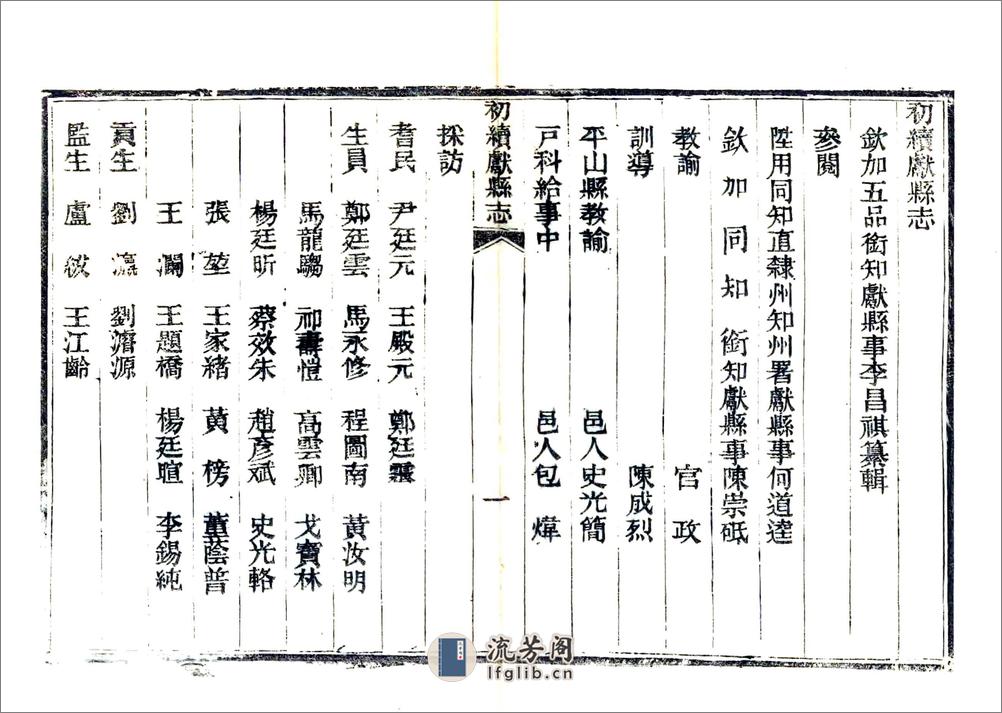 初續獻縣志
欽加五品銜知獻縣事李昌祺纂輯
參閱
陞用同知直隸州知州署獻縣事何道逵
欽加同知銜知獻縣事陳崇砥
教諭 官政
訓導 陳成烈
平山縣教諭 邑人史光簡
戸科給事中 邑人包煒
初續獻縣志 一
採訪
耆民 尹廷元 王殿元 鄭廷
生員 鄭廷雲 馬永修 程圖南 黃汝明
馬龍驤 祁壽愷 高雲卿 戈寶林
楊廷昕 蔡效朱 趙彥斌 史光輅
張堃 王家緒 黃榜 董蔭普
王瀾 王題橋 楊廷暄 李錫純
貢生 劉瀛 劉濬源
監生 盧紱 王江齡
流芳阁
lfglib.cn